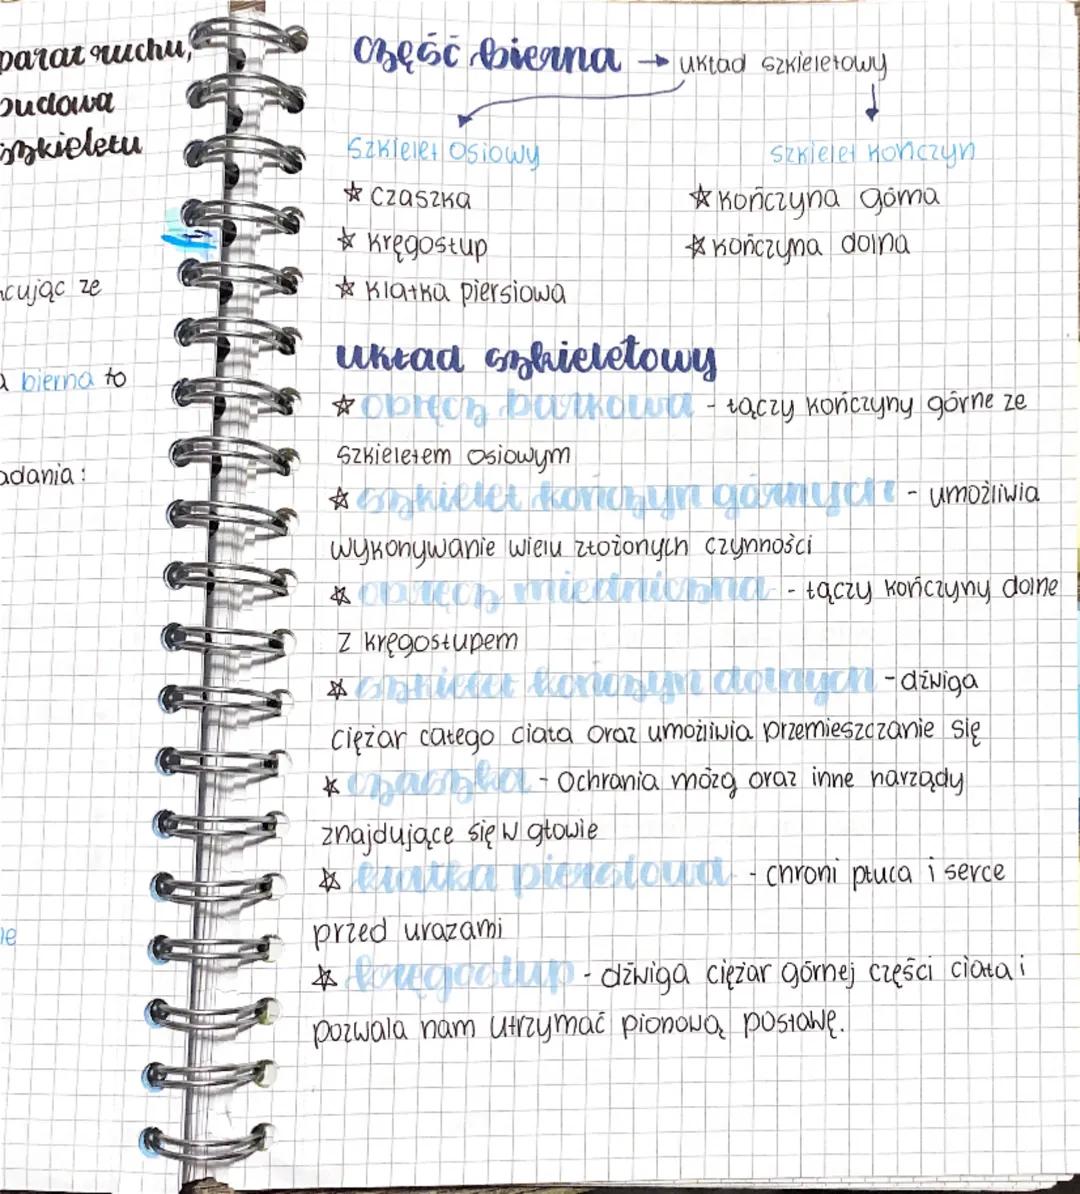 ruchu,
budowa
szkieletu
ze
bierna to
część bierna → układ szkieletowy
szkielet osiowy
szkielet kończyn
☆ czaszka
☆ kończyna górna
☆ kręgosłup
☆ kończyna dolna
☆ klatka piersiowa
układ szkieletowy
☆ obręcz barkowa - łączy kończyny górne ze
szkieletem osiowym
☆ szkielet kończyn górnych - umożliwia
wykonywanie wielu złożonych czynności
☆ obręcz miedniczna - łączy kończyny dolne
z kręgosłupem
☆ szkielet kończyn dolnych - dźwiga
ciężar całego ciała oraz umożliwia przemieszczanie się
☆ czaszka - ochrania mózg oraz inne narządy
znajdujące się w głowie
☆ klatka piersiowa - chroni płuca i serce
przed urazami
☆ kręgosłup - dźwiga ciężar górnej części ciała i
pozwala nam utrzymać pionową postawę.